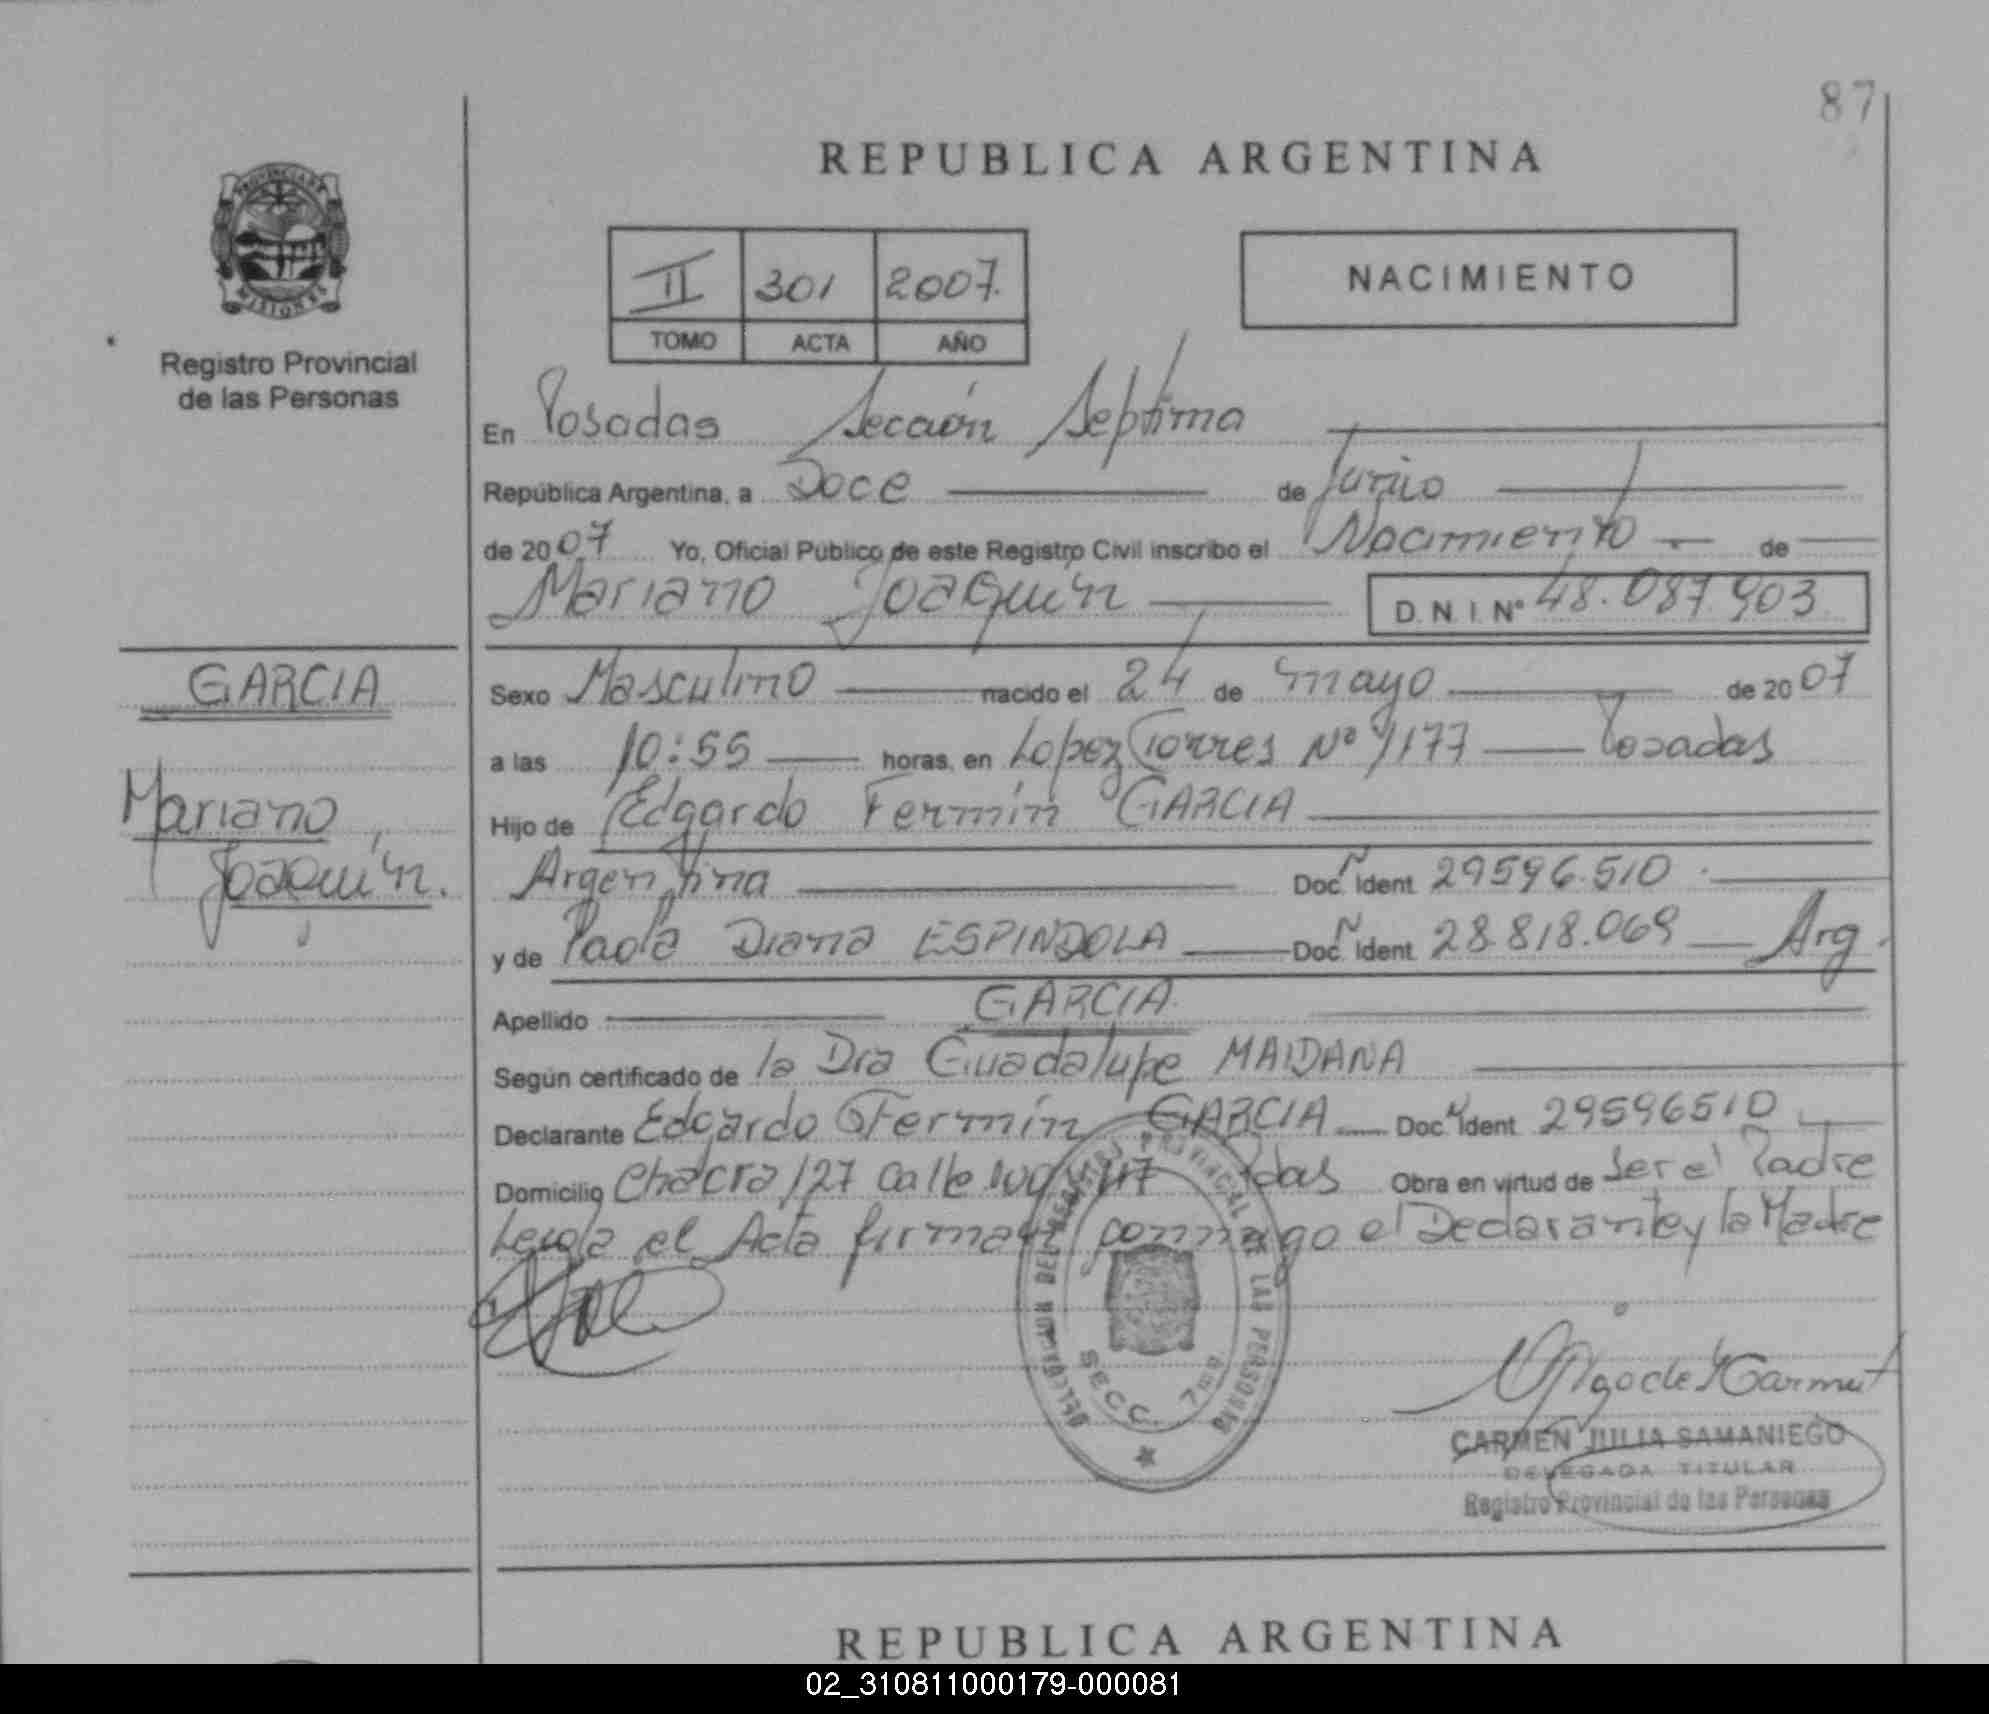 87
REPUBLICA ARGENTINA
II 301 2007
TOMO ACTA AÑO
NACIMIENTO
PROVINCIA DE MISIONES
Registro Provincial
de las Personas
En Posadas Sección Septima
República Argentina, a Doce de Junio
de 2007 Yo, Oficial Público de este Registro Civil inscribo el Nacimiento de
Mariano Joaquín D.N.I.Nº 48.087.903
GARCIA
Mariano,
Joaquín.
Sexo Masculino nacido el 24 de mayo de 2007
a las 10:55 horas, en Lopez Torres Nº 1177 Posadas
Hijo de Edgardo Fermín GARCIA
Argentina Doc. Ident 29596.510
y de Paola Diana ESPINDOLA Doc. Ident 28.818.069 Arg.
Apellido GARCIA
Según certificado de la Dra Guadalupe MAIDANA
Declarante Edgardo Fermín GARCIA Doc. Ident 29596510
Domicilio Chacra 127 calle Obra en virtud de Ser el Padre
Leida el Acta firman conmigo el Declarante y la Madre
DELEGACION DEL REGISTRO PROVINCIAL DE LAS PERSONAS
SECC. 7ma
CARMEN JULIA SAMANIEGO
DELEGADA TITULAR
Registro Provincial de las Personas
REPUBLICA ARGENTINA
02_310811000179-000081